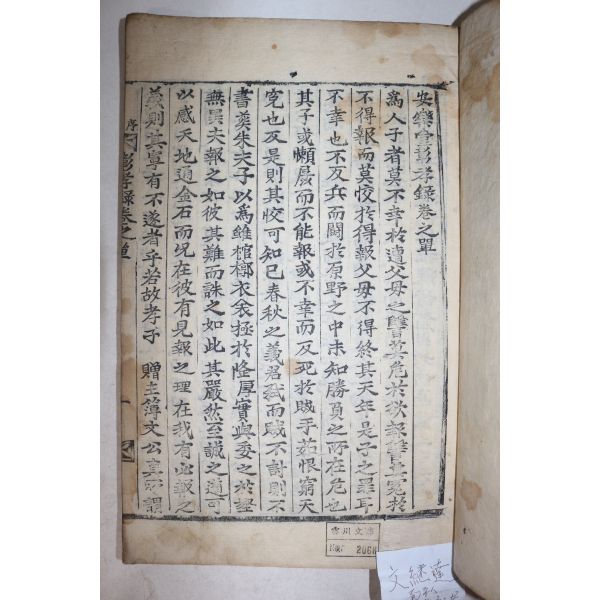 安樂堂彰孝錄卷之單
爲人子者莫不幸於遭父母之讐莫危於欲報讐莫冤於
不得報而莫恔於得報父母不得終其天年是子之罪耳
不幸也不反兵而鬪於原野之中未知勝負之所在危也
其子或懶孱而不能報或不幸而反死於賊手茹恨窮天
冤也及是則其恔可知已春秋之義君弑而賊不討則不
書葬朱夫子以爲雖棺槨衣衾極於隆厚實與委之於壑
無異夫報之如彼其難而誅之如此其嚴然至誠之道可
以感天地通金石而况在彼有見報之理在我有必報之
義則其寧有不遂者乎若故孝子 贈主簿文公眞所謂
序 彰孝錄卷之單
雪川文庫
2068
文継